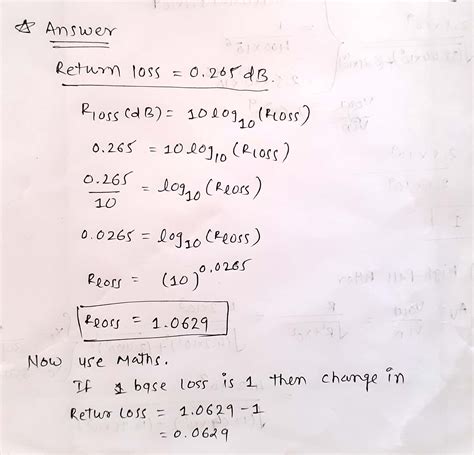 ☆ Answer
Return loss = 0.265 dB.
Rloss (dB) = 10 log10 (Rloss)
0.265 = 10 log10 (Rloss)
0.265/10 = log10 (Rloss)
0.0265 = log10 (Rloss)
Rloss = (10)^0.0265
Rloss = 1.0629
Now use Maths.
If 1 base loss is 1 then change in
Retur Loss = 1.0629 - 1
= 0.0629